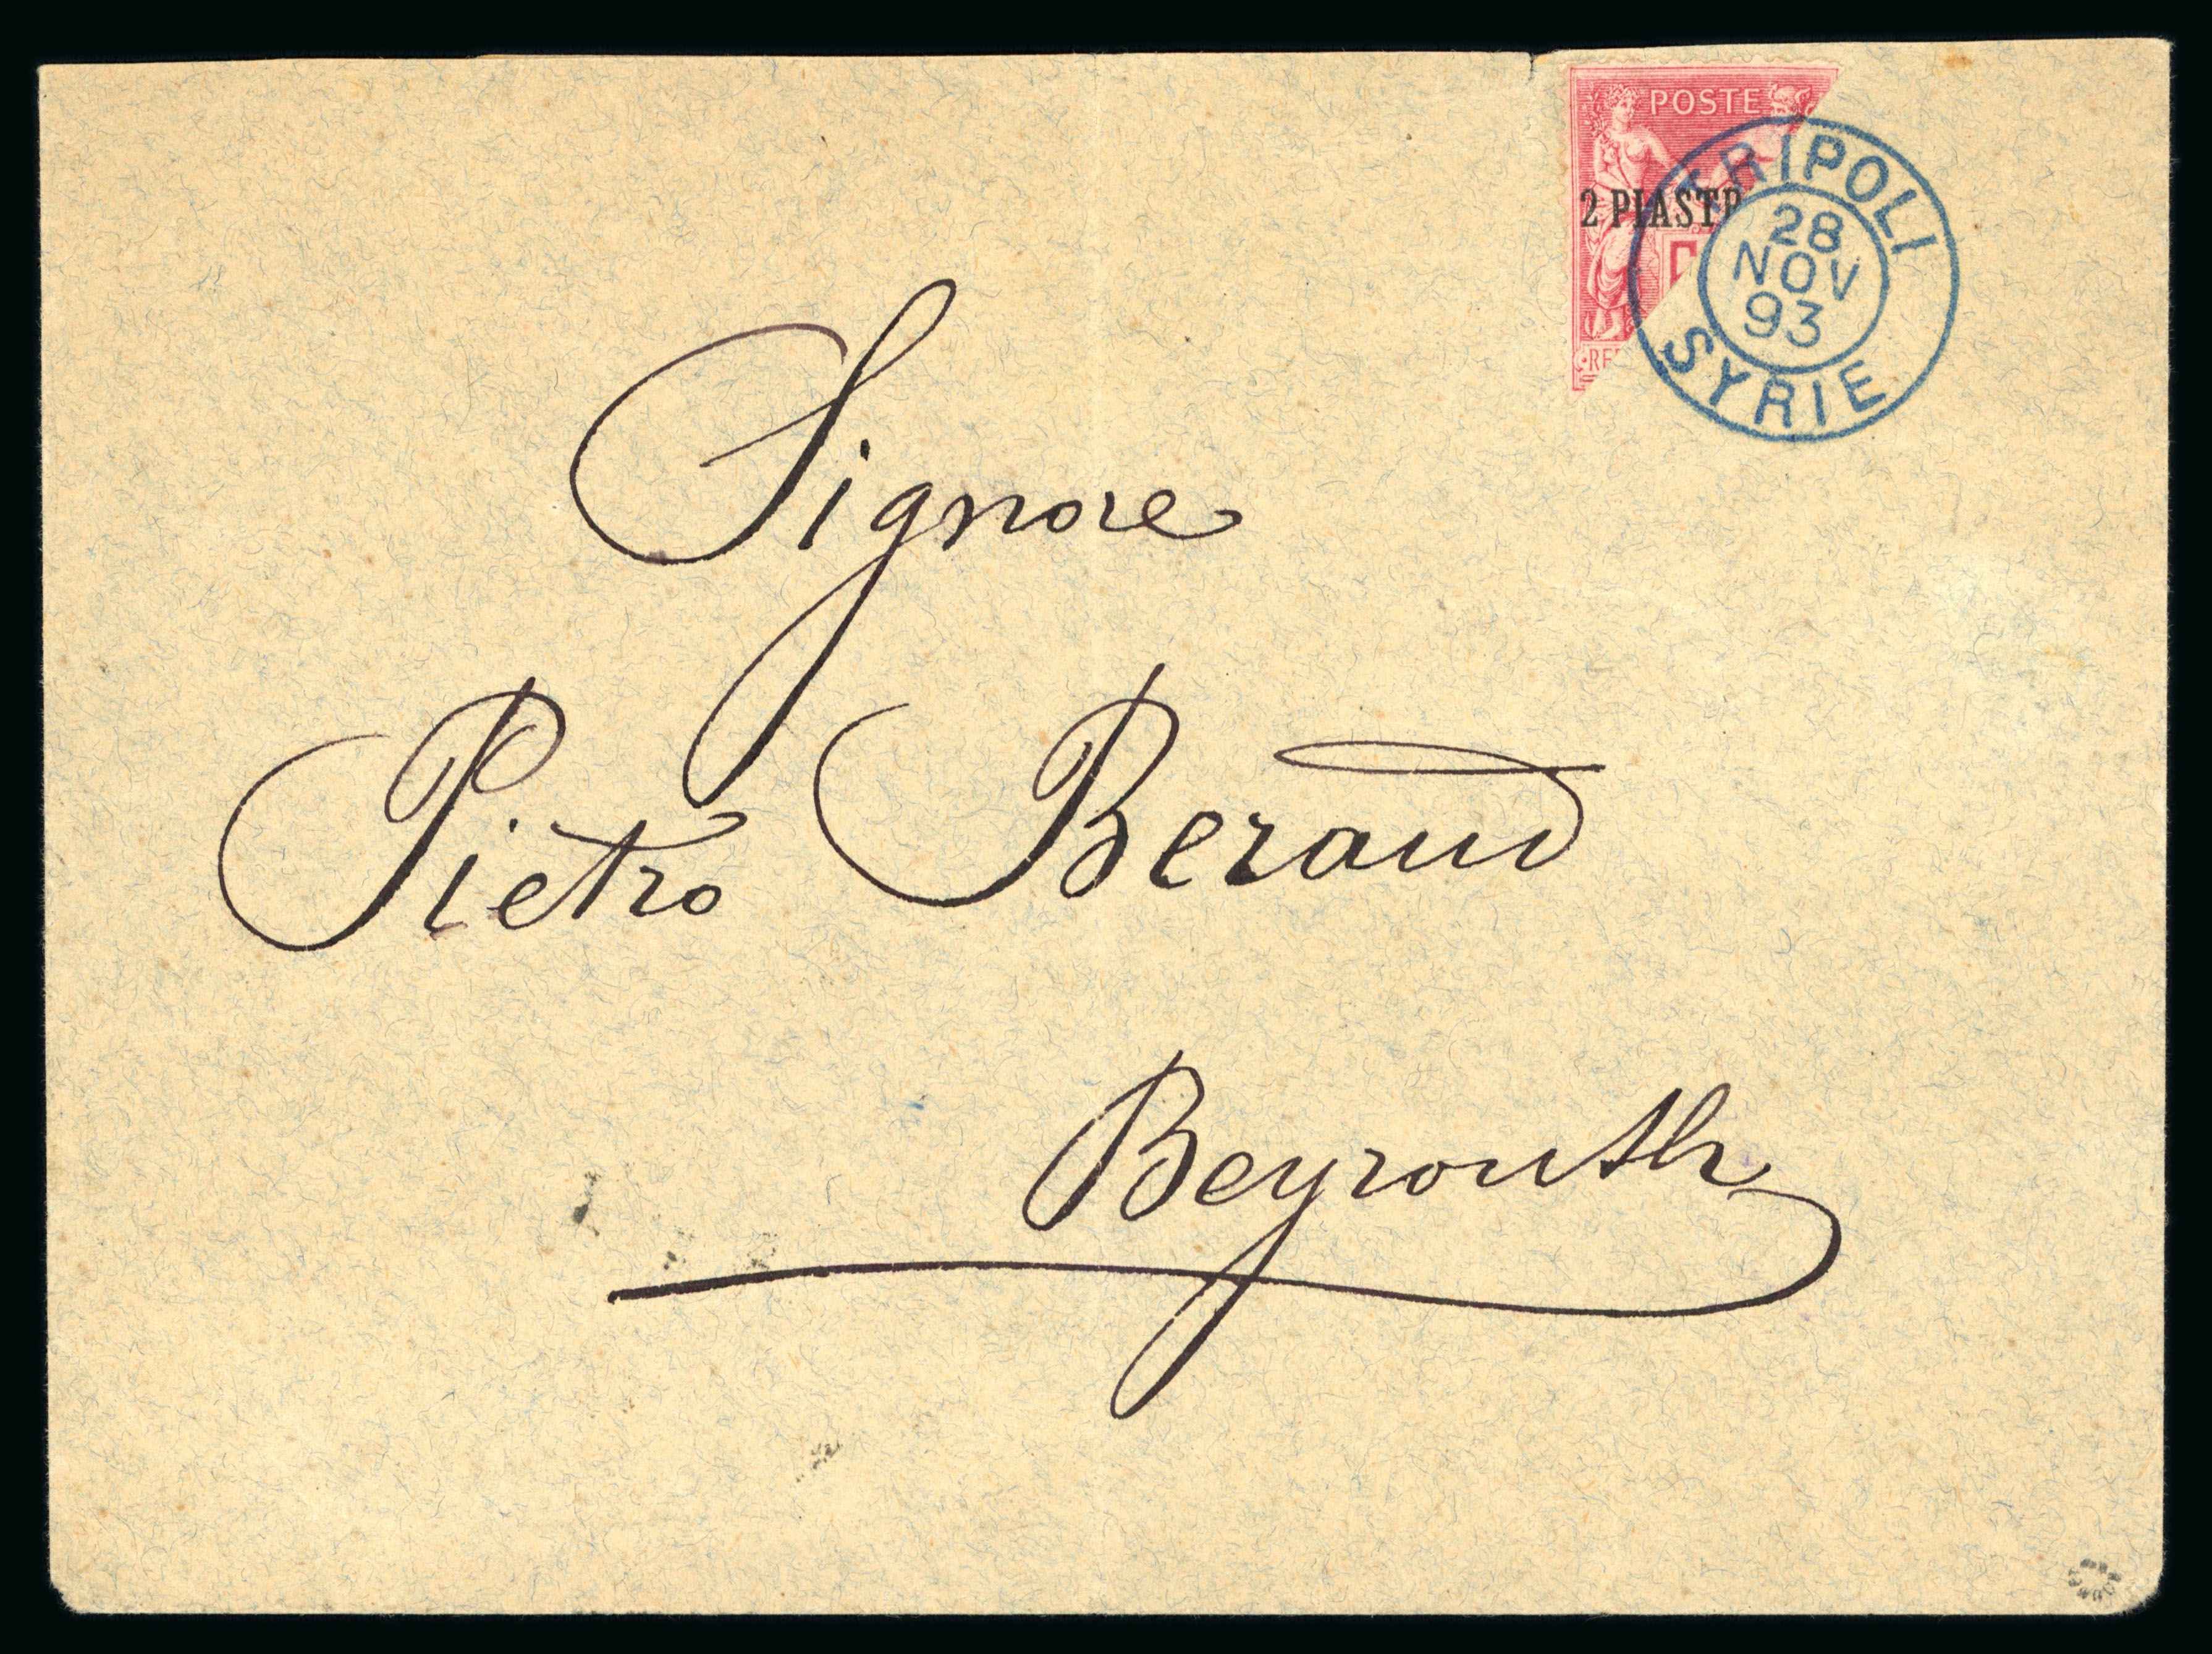 POSTE
2 PIASTR
RE
TRIPOLI
28
NOV
93
SYRIE
Signore
Pietro Beraud
Beyrouth